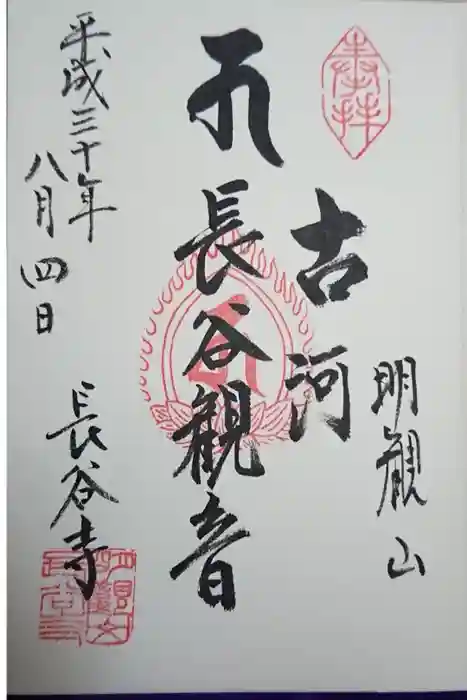 奉拝
明観山
古河
長谷観音
平成三十年
八月四日
長谷寺